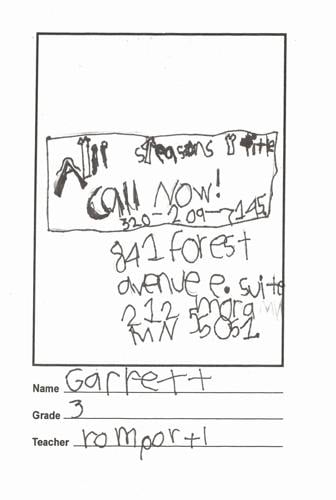 All Seasons Title
Call Now!
320-209-1145
841 forest
avenue e. suite
212 mora
MN 55051
Name Garrett
Grade 3
Teacher romportl